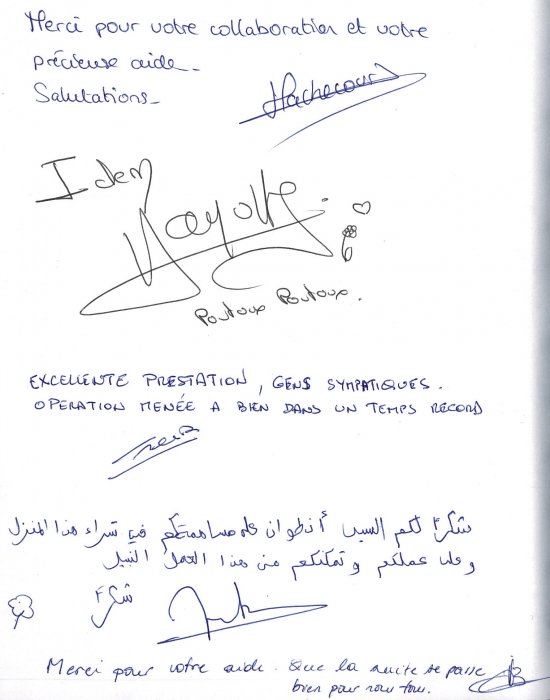 Merci pour votre collaboration et votre
précieuse aide_
Salutations_
Idem
Poutoux Poutoux.
EXCELLENTE PRESTATION, GENS SYMPATIQUES.
OPERATION MENÉE A BIEN DANS UN TEMPS RECORD
شكرًا لكم السيد أنطوان على مساهمتكم في شراء هذا المنزل
وعلى عملكم وتمكنكم من هذا العمل النبيل
شكرًا
Merci pour votre aide. Que la suite se passe
bien pour nous tous